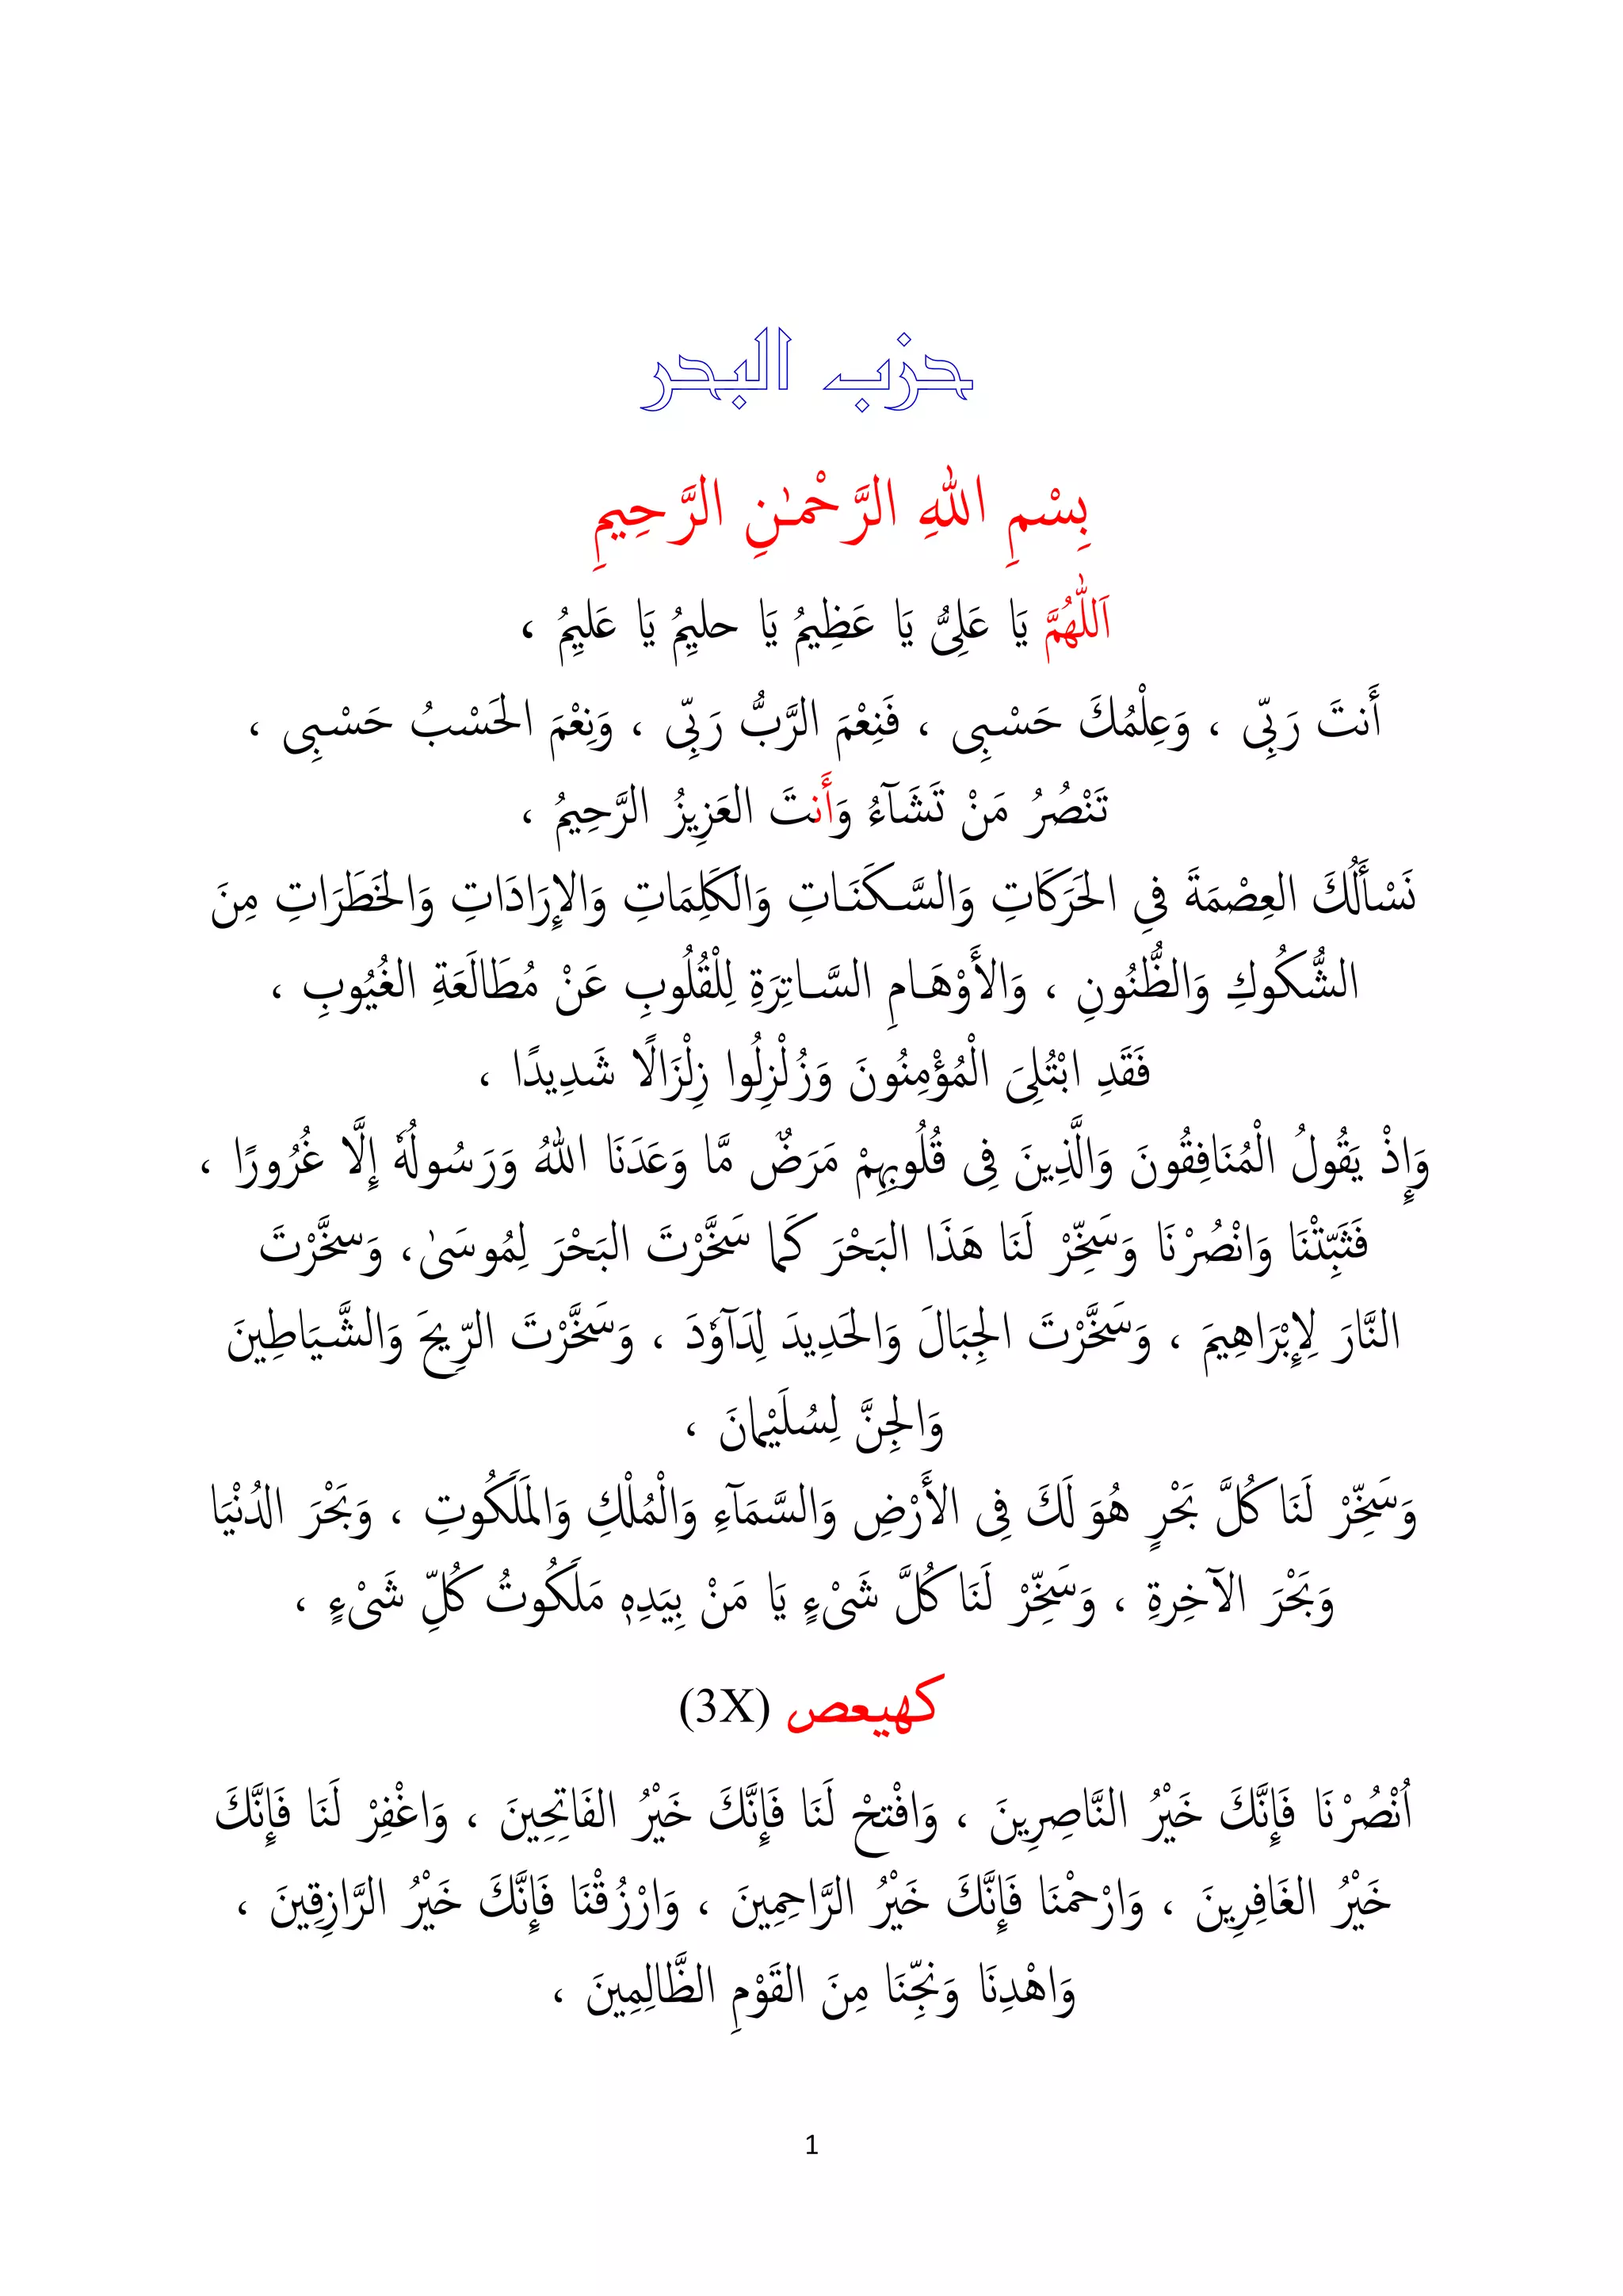 حزب البحر
بِسْمِ اللهِ الرَّحْمَـٰنِ الرَّحِيمِ
اَللّٰهُمَّ يَا عَلِىُّ يَا عَظِيمُ يَا حليِمُ يَا عَليِمُ ،
أَنتَ رَبِّى ، وَعِلْمُكَ حَسْبِى ، فَنِعْمَ الرَّبُّ رَبِّى ، وَنِعْمَ الحَسْبُ حَسْبِى ،
تَنْصُرُ مَنْ تَشَآءُ وَأَنتَ العَزِيزُ الرَّحِيمُ ،
نَسْأَلُكَ العِصْمَةَ فِي الحَرَكَاتِ وَالسَّكَنَـاتِ وَالكَلِمَاتِ وَالإِرَادَاتِ وَالخَطَرَاتِ مِنَ
الشُّكُوكِ وَالظُّنُونِ ، وَالأَوْهَـامِ السَّـاتِرَةِ لِلْقُلُوبِ عَنْ مُطَالَعَةِ الغُيُوبِ ،
فَقَدِ ابْتُلِىَ الْمُؤْمِنُونَ وَزُلْزِلُوا زِلْزَالًا شَدِيدًا ،
وَإِذْ يَقُولُ الْمُنَافِقُونَ وَالَّذِينَ فِى قُلُوبِهِمْ مَرَضٌ مَّا وَعَدَنَا اللهُ وَرَسُولُهُٗ إِلَّا غُرُورًا ،
فَثَبِّتْنَا وَانْصُرْنَا وَسَخِّرْ لَنَا هَذَا البَحْرَ كَمَا سَخَّرْتَ البَحْرَ لِمُوسَىٰ ، وَسخَّرْتَ
النَّارَ لِإِبْرَاهِيمَ ، وَسَخَّرْتَ الجِبَالَ وَالحَدِيدَ لِدَآوٗدَ ، وَسَخَّرْتَ الرِّيحَ وَالشَّيَاطِينَ
وَالجِنَّ لِسُلَيْمَانَ ،
وَسَخِّرْ لَنَا كُلَّ بَحْرٍ هُوَ لَكَ فِى الأَرْضِ وَالسَّمَآءِ وَالْمُلْكِ وَالمَلَكُوتِ ، وَبَحْرَ الدُنْيَا
وَبَحْرَ الآخِرةِ ، وَسَخِّرْ لَنَا كُلَّ شَىْءٍ يَا مَنْ بِيَدِهٖ مَلَكُوتُ كُلِّ شَىْءٍ ،
كهيعص (3X)
اُنْصُرْنَا فَإِنَّكَ خَيْرُ النَّاصِرِينَ ، وَافْتحْ لَنَا فَإِنَّكَ خَيْرُ الفَاتِحِينَ ، وَاغْفِرْ لَنَا فَإِنَّكَ
خَيْرُ الغَافِرِينَ ، وَارْحَمْنَا فَإِنَّكَ خَيْرُ الرَّاحِمِينَ ، وَارْزُقْنَا فَإِنَّكَ خَيْرُ الرَّازِقِينَ ،
وَاهْدِنَا وَنَجِّنَا مِنَ القَوْمِ الظَّالِمِينَ ،
1